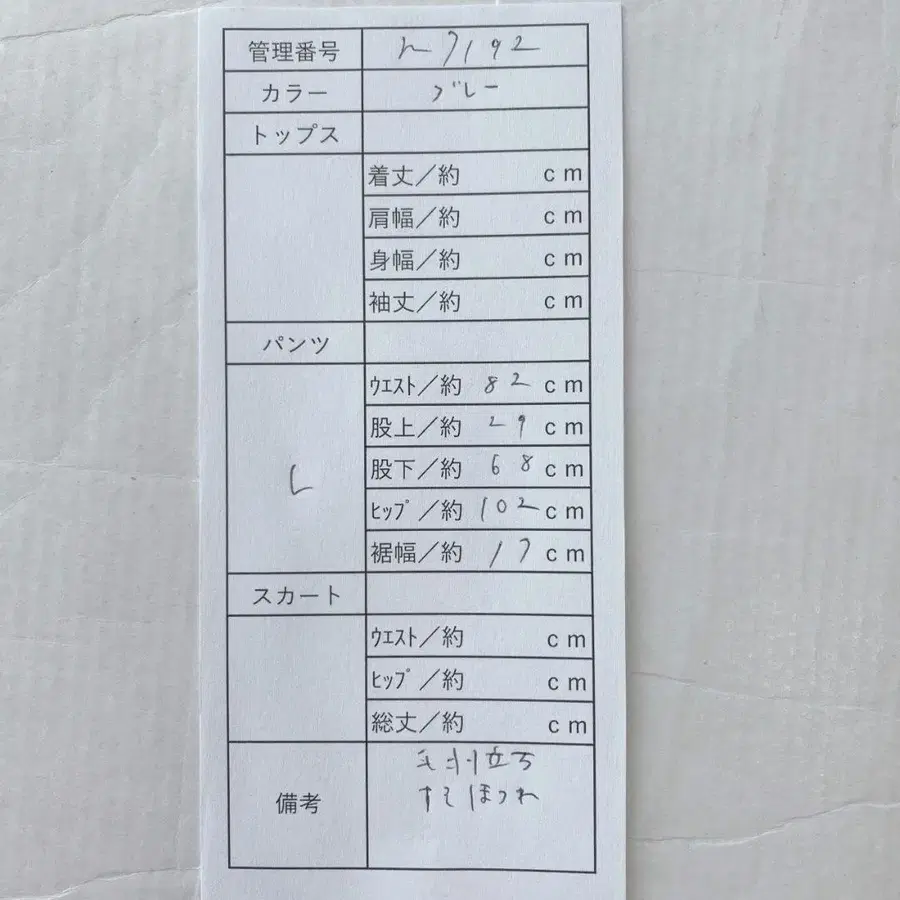 管理番号 7192
カラー グレー
トップス
着丈／約 cm
肩幅／約 cm
身幅／約 cm
袖丈／約 cm
パンツ
ｳｴｽﾄ／約 82 cm
股上／約 29 cm
L 股下／約 68 cm
ﾋｯﾌﾟ／約 102 cm
裾幅／約 17 cm
スカート
ｳｴｽﾄ／約 cm
ﾋｯﾌﾟ／約 cm
総丈／約 cm
備考 毛羽立ち
すそほつれ